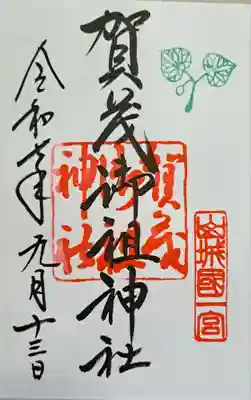 山城國一宮
賀茂御祖神社
賀茂
御祖
神社
令和七年九月十三日